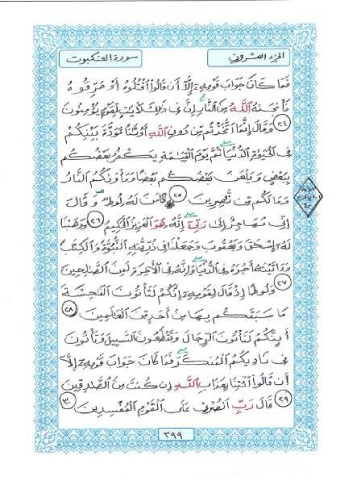 الجزء العشرون سورة العنكبوت
فَمَا كَانَ جَوَابَ قَوْمِهِ إِلَّا أَن قَالُوا اقْتُلُوهُ أَوْ حَرِّقُوهُ
فَأَنجَىٰهُ اللَّهُ مِنَ النَّارِ إِنَّ فِي ذَٰلِكَ لَآيَاتٍ لِّقَوْمٍ يُؤْمِنُونَ
٢٤ وَقَالَ إِنَّمَا اتَّخَذْتُم مِّن دُونِ اللَّهِ أَوْثَانًا مَّوَدَّةَ بَيْنِكُمْ
فِي الْحَيَوٰةِ الدُّنْيَا ثُمَّ يَوْمَ الْقِيَٰمَةِ يَكْفُرُ بَعْضُكُم
بِبَعْضٍ وَيَلْعَنُ بَعْضُكُم بَعْضًا وَمَأْوَىٰكُمُ النَّارُ
وَمَا لَكُم مِّن نَّٰصِرِينَ ٢٥ فَـَٔامَنَ لَهُ لُوطٌ وَقَالَ
إِنِّي مُهَاجِرٌ إِلَىٰ رَبِّي إِنَّهُ هُوَ الْعَزِيزُ الْحَكِيمُ ٢٦ وَوَهَبْنَا
لَهُ إِسْحَٰقَ وَيَعْقُوبَ وَجَعَلْنَا فِي ذُرِّيَّتِهِ النُّبُوَّةَ وَالْكِتَٰبَ
وَءَاتَيْنَٰهُ أَجْرَهُ فِي الدُّنْيَا وَإِنَّهُ فِي الْآخِرَةِ لَمِنَ الصَّٰلِحِينَ
٢٧ وَلُوطًا إِذْ قَالَ لِقَوْمِهِ إِنَّكُمْ لَتَأْتُونَ الْفَٰحِشَةَ
مَا سَبَقَكُم بِهَا مِنْ أَحَدٍ مِّنَ الْعَٰلَمِينَ ٢٨
أَئِنَّكُمْ لَتَأْتُونَ الرِّجَالَ وَتَقْطَعُونَ السَّبِيلَ وَتَأْتُونَ
فِي نَادِيكُمُ الْمُنكَرَ فَمَا كَانَ جَوَابَ قَوْمِهِ إِلَّا
أَن قَالُوا ائْتِنَا بِعَذَابِ اللَّهِ إِن كُنتَ مِنَ الصَّٰدِقِينَ
٢٩ قَالَ رَبِّ انصُرْنِي عَلَى الْقَوْمِ الْمُفْسِدِينَ ٣٠
٣٩٩